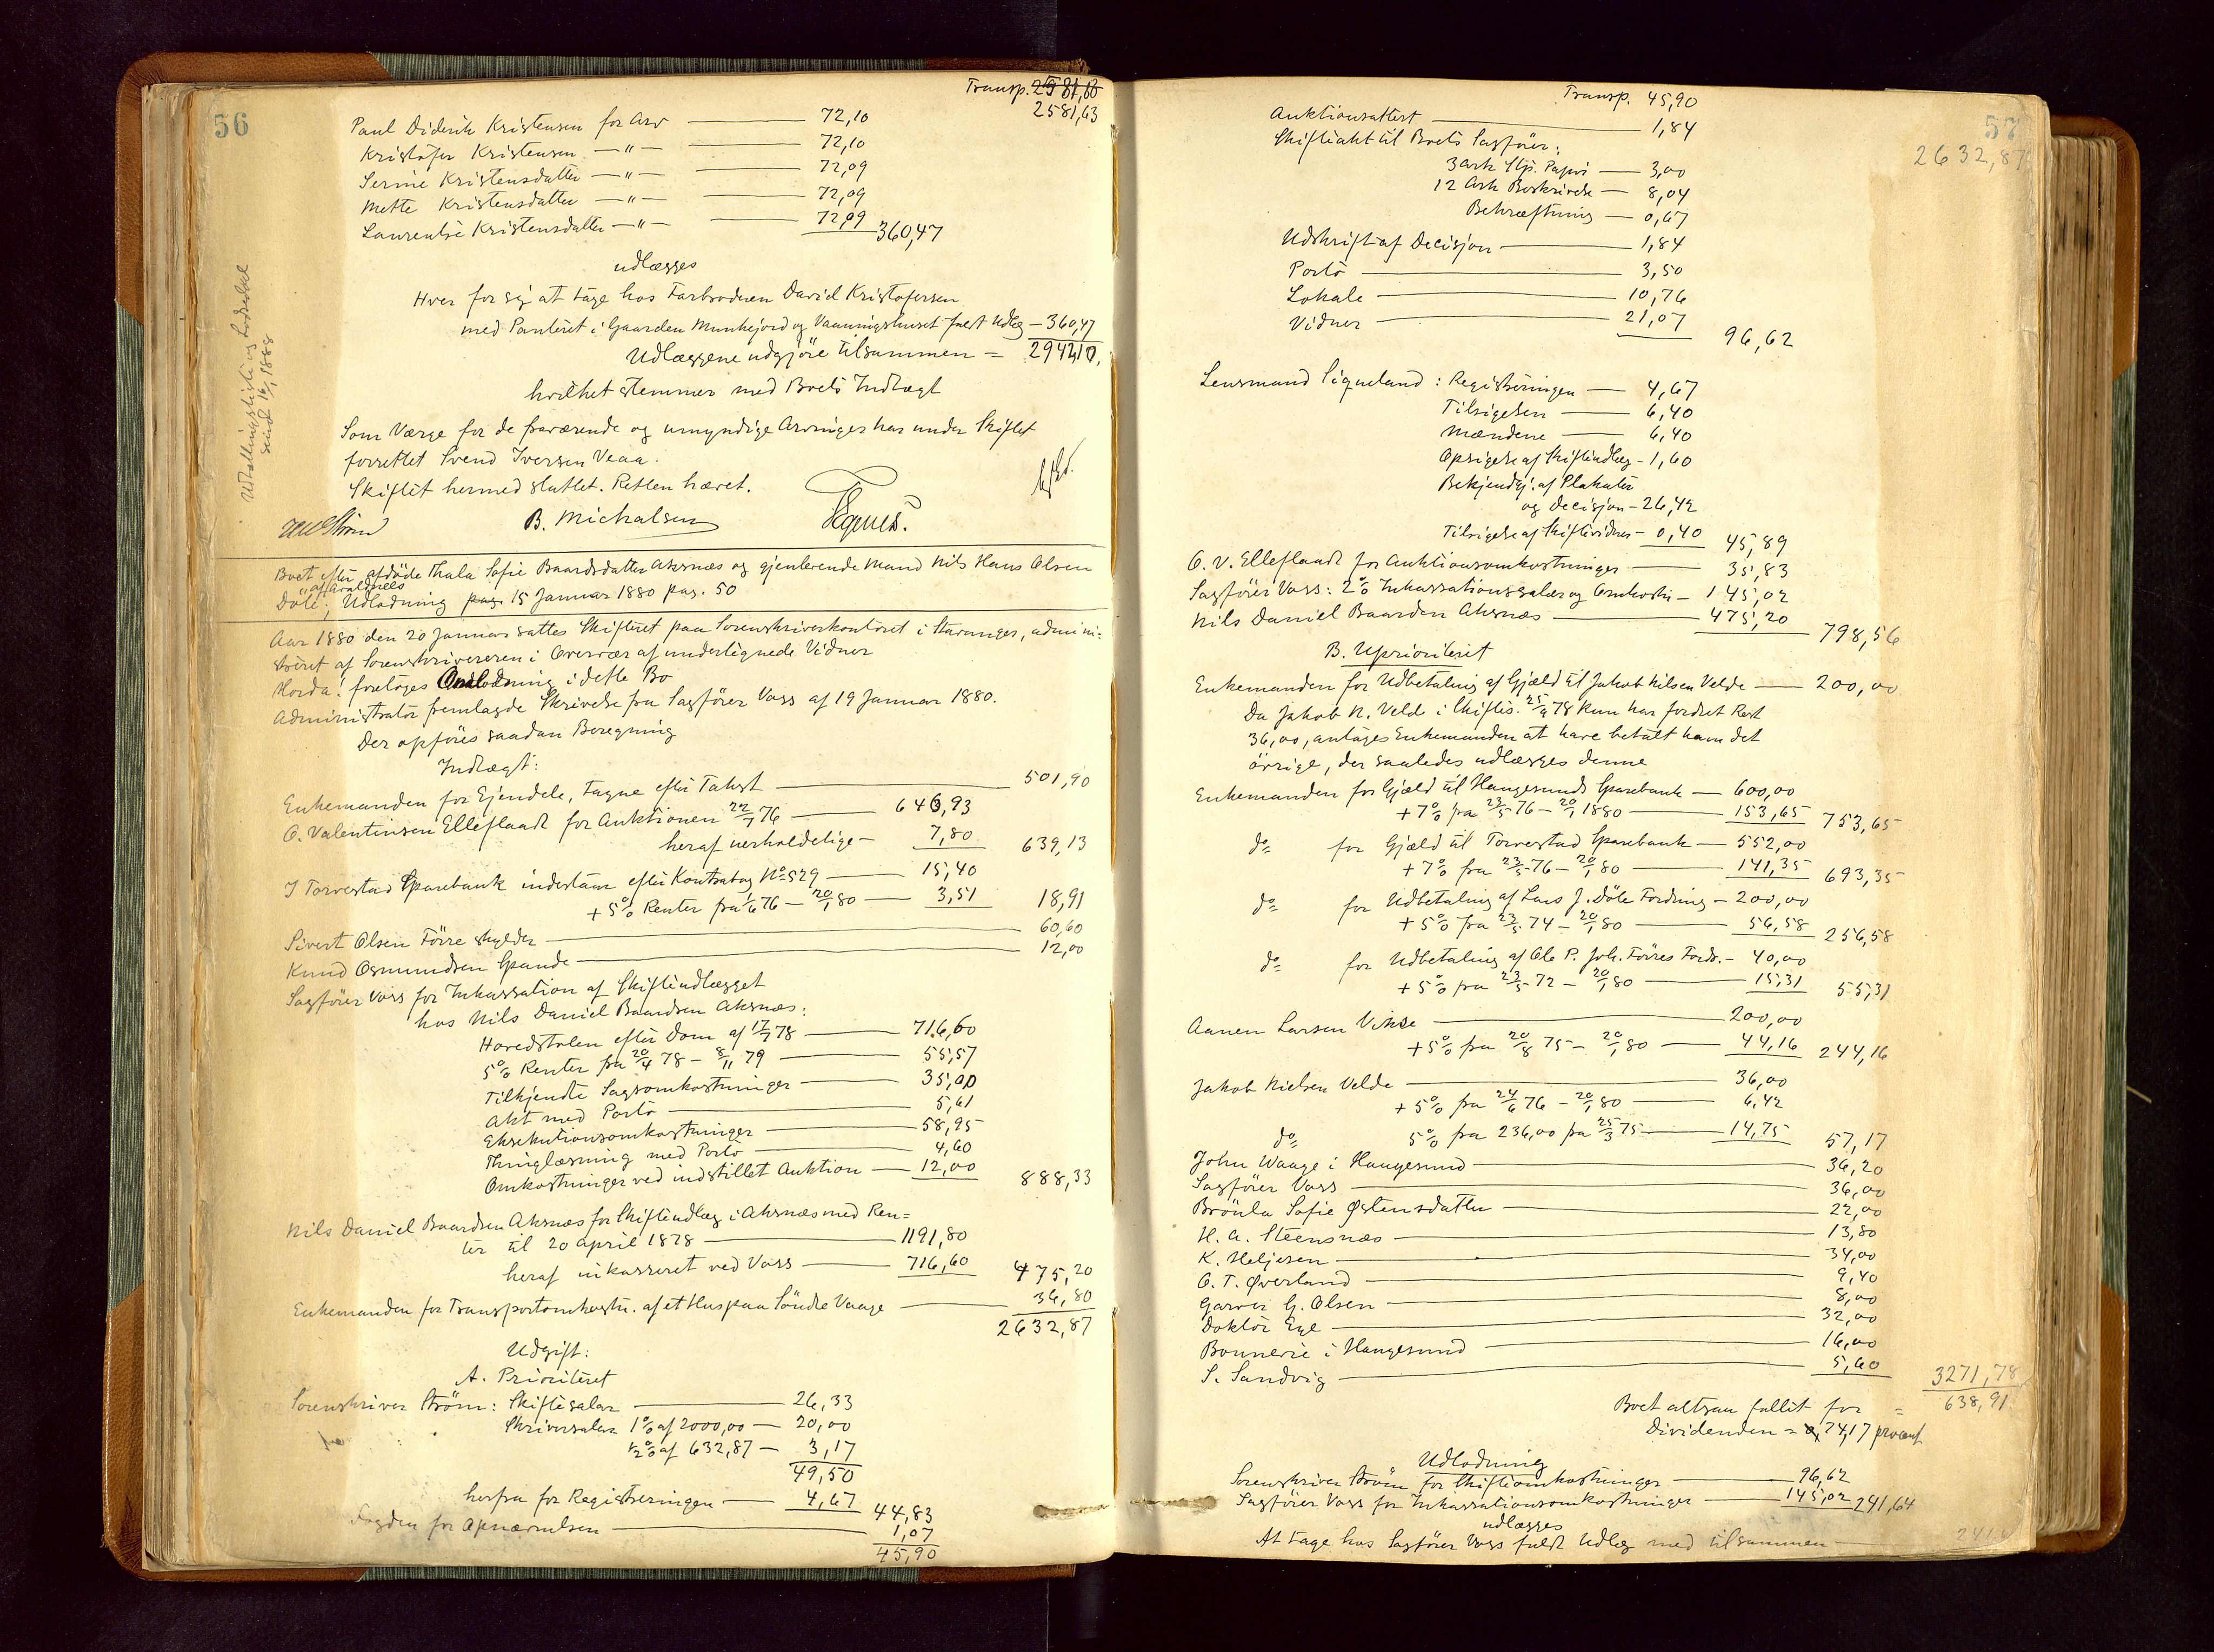 56
Transp. 2581,63
2581,63
Paul Diderik Kristensen for Arv 72,10
Kristofer Kristensen — " — 72,10
Serine Kristensdatter — " — 72,09
Mette Kristensdatter — " — 72,09
Laurentse Kristensdatter — " — 72,09 360,47
udlægges
Hver for sig at tage hos Farbroderen David Kristofersen
med Panteret i Gaarden Munkejord og Vaaningshuset fuldt Udlæg — 360,47
Udlæggene udgjøre tilsammen = 2942,10.
hvilket stemmer med Boets Indtægt
Som Værge for de fraværende og umyndige Arvinger har under Skiftet
forrettet Svend Iversen Veaa.
Skiftet hermed sluttet. Retten hævet.
B. Michalsen
Boet efter afdøde Thala Sofie Baardsdatter Aksnæs og gjenlevende Mand Nils Hans Olsen
Døle; Udlodning pag. 15 Januar 1880 pag. 50
Aar 1880 den 20 Januar sattes Skifteret paa Sorenskriverkontoret i Stavanger, admini-
streret af Sorenskriveren i Overvær af undertegnede Vidner
Hvorda: foretoges Udlodning i dette Bo
Administrator fremlagde Skrivelse fra Sagfører Voss af 19 Januar 1880.
Der opføres saadan Beregning
Indtægt:
Enkemanden for Ejendele, tagne efter Takst 501,90
O. Valentinsen Elleflaadt for Auktionen 22/7 76 646,93
heraf uerholdelige — 7,80 639,13
I Torvestad Sparebank indestaar efter Kontrabog No 529 15,40
+ 5% Renter fra 1/6 76 — 20/1 80 — 3,51 18,91
Sivert Olsen Førre skylder 60,60
Knud Osmundsen Spande 12,00
Sagfører Voss for Inkassation af Skifteudlægget
hos Nils Daniel Baardsen Aksnæs:
Hovedstolen efter Dom af 17/7 78 716,60
5% Renter fra 20/4 78 — 8/11 79 55,57
Tilkjendte Sagsomkostninger 35,00
Akt med Porto 5,61
Eksekutionsomkostninger 58,95
Thinglæsning med Porto 4,60
Omkostninger ved indstillet Auktion — 12,00 888,33
Nils Daniel Baardsen Aksnæs for Skifteudlæg i Aksnæs med Ren-
ter til 20 April 1878 1191,80
heraf inkasseret ved Voss 716,60 475,20
Enkemanden for Transportomkostn. af et Hus paa Søndre Vaage 36,80
2632,87
Udgift:
A. Prioriteret
Sorenskriver Strøm: Skiftesalær 26,33
Skriversalær 1% af 2000,00 — 20,00
½% af 632,87 — 3,17
49,50
herfra for Registreringen — 4,67 44,83
Fogden for Opnævnelsen 1,07
45,90
57
2632,87
Transp. 45,90
Auktionsattest 1,84
Skifteakt til Boets Sagfører:
3 Ark Stp. Papir — 3,00
12 Ark Beskrivelse — 8,04
Bekræftning — 0,67
Udskrift af Decisjon 1,84
Porto 3,50
Lokale 10,76
Vidner 21,07 96,62
Lensmand Liqueland: Registreringen — 4,67
Tilsigelsen 6,40
Mændene 6,40
Opsigelse af Skifteudlæg — 1,60
Bekjendtgj. af Plakater
og Decisjon — 26,42
Tilsigelse af Skiftevidner — 0,40 45,89
O. V. Elleflaadt for Auktionsomkostninger 35,83
Sagfører Voss: 2% Inkassationssalær og Omkostn. — 145,02
Nils Daniel Baardsen Aksnæs 475,20 798,56
B. Uprioriteret
Enkemanden for Udbetaling af Gjæld til Jakob Nilsen Velde 200,00
Da Jakob N. Velde i Skiftes. 25/9 78 kun har fordret Rest
36,00, antages Enkemanden at have betalt ham det
øvrige, der saaledes udlægges denne
Enkemanden for Gjæld til Haugesunds Sparebank — 600,00
+ 7% fra 23/5 76 — 20/1 1880 153,65 753,65
do for Gjæld til Torvestad Sparebank — 552,00
+ 7% fra 23/5 76 — 20/1 80 141,35 693,35
do for Udbetaling af Lars J. Døle Fordring — 200,00
+ 5% fra 23/5 74 — 20/1 80 56,58 256,58
do for Udbetaling af Ole P. Joh. Førres Fordr. — 40,00
+ 5% fra 23/5 72 — 20/1 80 15,31 55,31
Aanen Larsen Vikse 200,00
+ 5% fra 20/8 75 — 20/1 80 44,16 244,16
Jakob Nielsen Velde 36,00
+ 5% fra 24/6 76 — 20/1 80 6,42
do 5% fra 236,00 fra 25/3 75 14,75 57,17
John Waage i Haugesund 36,20
Sagfører Voss 36,00
Brønla Sofie Østensdatter 22,00
H. A. Steensnæs 13,80
K. Heljesen 34,00
O. T. Øverland 9,40
Garver G. Olsen 8,00
Doktor Eye 32,00
Bonnevie i Haugesund 16,00
S. Sandvig 5,60 3271,78
Boet altsaa fallit for = 638,91
Dividenden = 74,17 procent
Udlodning
Sorenskriver Strøm for Skifteomkostninger 96,62
Sagfører Voss for Inkassationsomkostninger 145,02 241,64
udlægges
At tage hos Sagfører Voss fuldt Udlæg med tilsammen